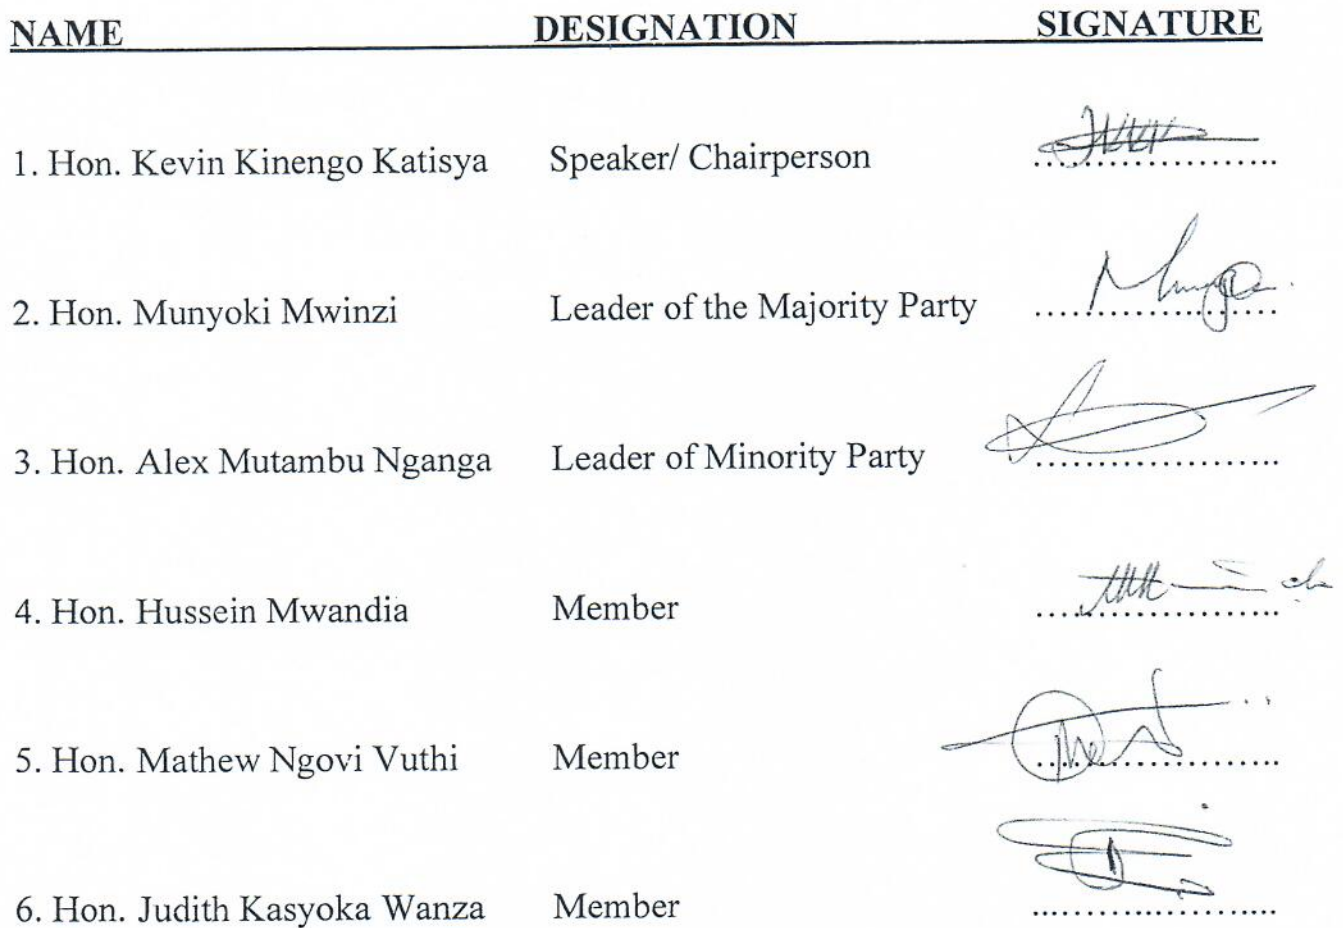 NAME DESIGNATION SIGNATURE
1. Hon. Kevin Kinengo Katisya Speaker/ Chairperson
2. Hon. Munyoki Mwinzi Leader of the Majority Party
3. Hon. Alex Mutambu Nganga Leader of Minority Party
4. Hon. Hussein Mwandia Member
5. Hon. Mathew Ngovi Vuthi Member
6. Hon. Judith Kasyoka Wanza Member